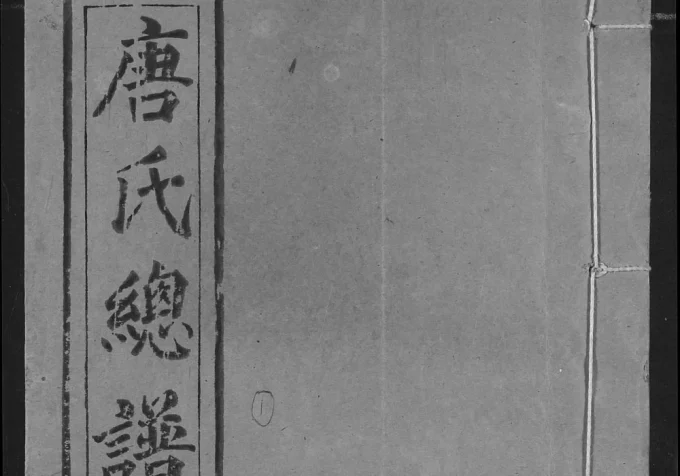 唐氏總譜
1